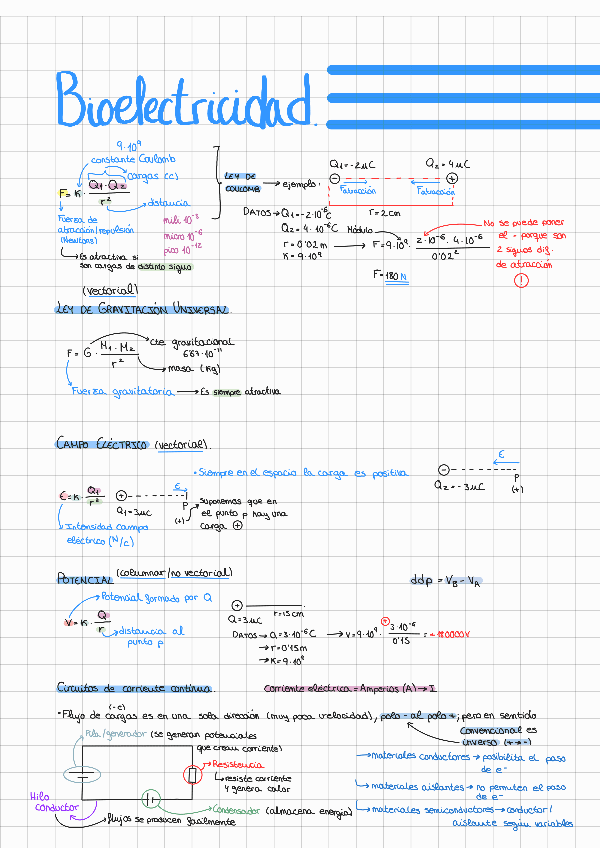 Bioelectricidad.
9·10⁹
constante Coulomb
cargas (C)
F = K · Q₁·Q₂ / r²
distancia
Fuerza de
atracción/repulsión
(Newtons)
Es atractiva si
son cargas de distinto signo
mili 10⁻³
micro 10⁻⁶
pico 10⁻¹²
LEY DE
COULOMB
ejemplo:
Q₁=-2μC
Q₂=4μC
Fatracción
Fatracción
r=2cm
DATOS → Q₁=-2·10⁻⁶C
Q₂=4·10⁻⁶C
r=0'02m
K=9·10⁹
Módulo
F=9·10⁹· 2·10⁻⁶·4·10⁻⁶ / 0'02²
F=180N
No se puede poner
el - porque son
2 signos dif.
de atracción
!
(vectorial)
LEY DE GRAVITACIÓN UNIVERSAL.
F = G · M₁·M₂ / r²
cte gravitacional
6'67·10⁻¹¹
masa (Kg)
Fuerza gravitatoria → Es siempre atractiva
CAMPO ELÉCTRICO (vectorial).
• Siempre en el espacio la carga es positiva
E=K· Q₁ / r²
Q₁=3μC
E
P
(+)
suponemos que en
el punto p hay una
carga +
Intensidad campo
eléctrico (N/C)
E
Q₂=-3μC
P
(+)
POTENCIAL (columnar/no vectorial)
ddp = V_B - V_A
Potencial formado por Q
V=K· Q / r
distancia al
punto p
Q=3μC
r=15cm
DATOS → Q=3·10⁻⁶C
→ r=0'15m
→ K=9·10⁹
→ V=9·10⁹· 3·10⁻⁶ / 0'15 = +180000V
Circuitos de corriente continua.
Corriente eléctrica = Amperios (A) → I
(-e)
• Flujo de cargas es en una sola dirección (muy poca velocidad), polo - al polo +; pero en sentido
convencional es
inverso (+ → -)
Pila/generador (se generan potenciales
que crean corriente)
Resistencia
resiste corriente
y genera calor
Condensador (almacena energía)
Hilo
conductor
flujos se producen fácilmente
→ materiales conductores → posibilita el paso
de e⁻
→ materiales aislantes → no permiten el paso
de e⁻
→ materiales semiconductores → conductor/
aislante según variables